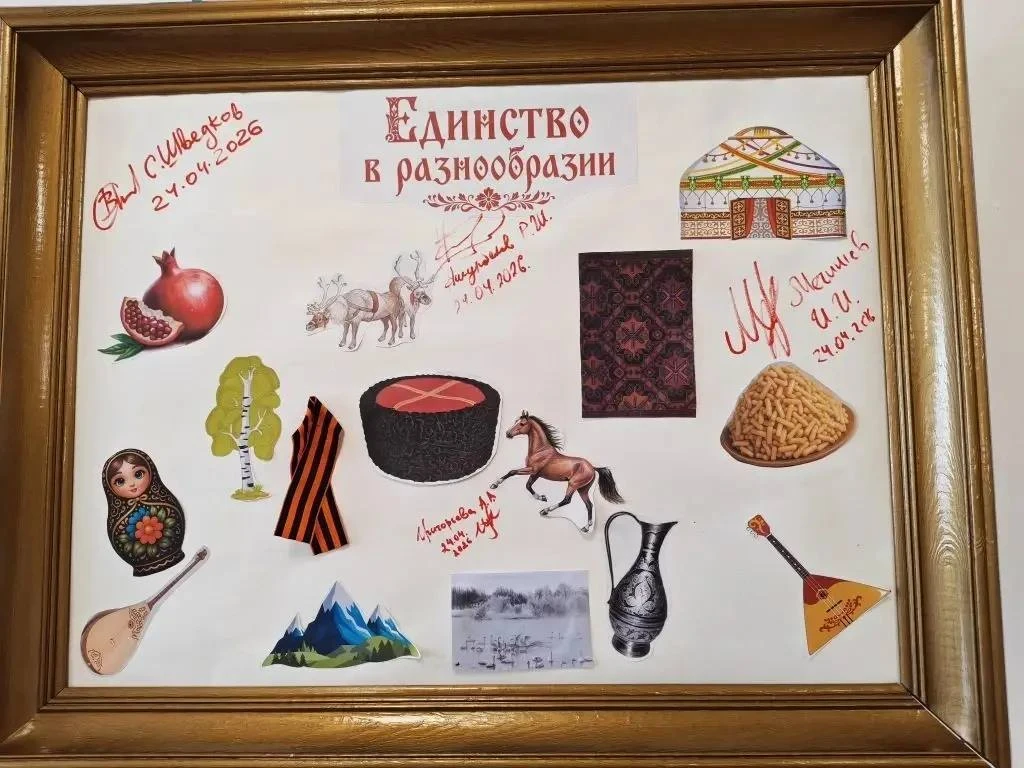 Единство
в разнообразии
С. Шведков
24.04.2026
Р. И.
24.04.2026.
И. И.
24.04.206
Григорьева А.А
24.04
2026